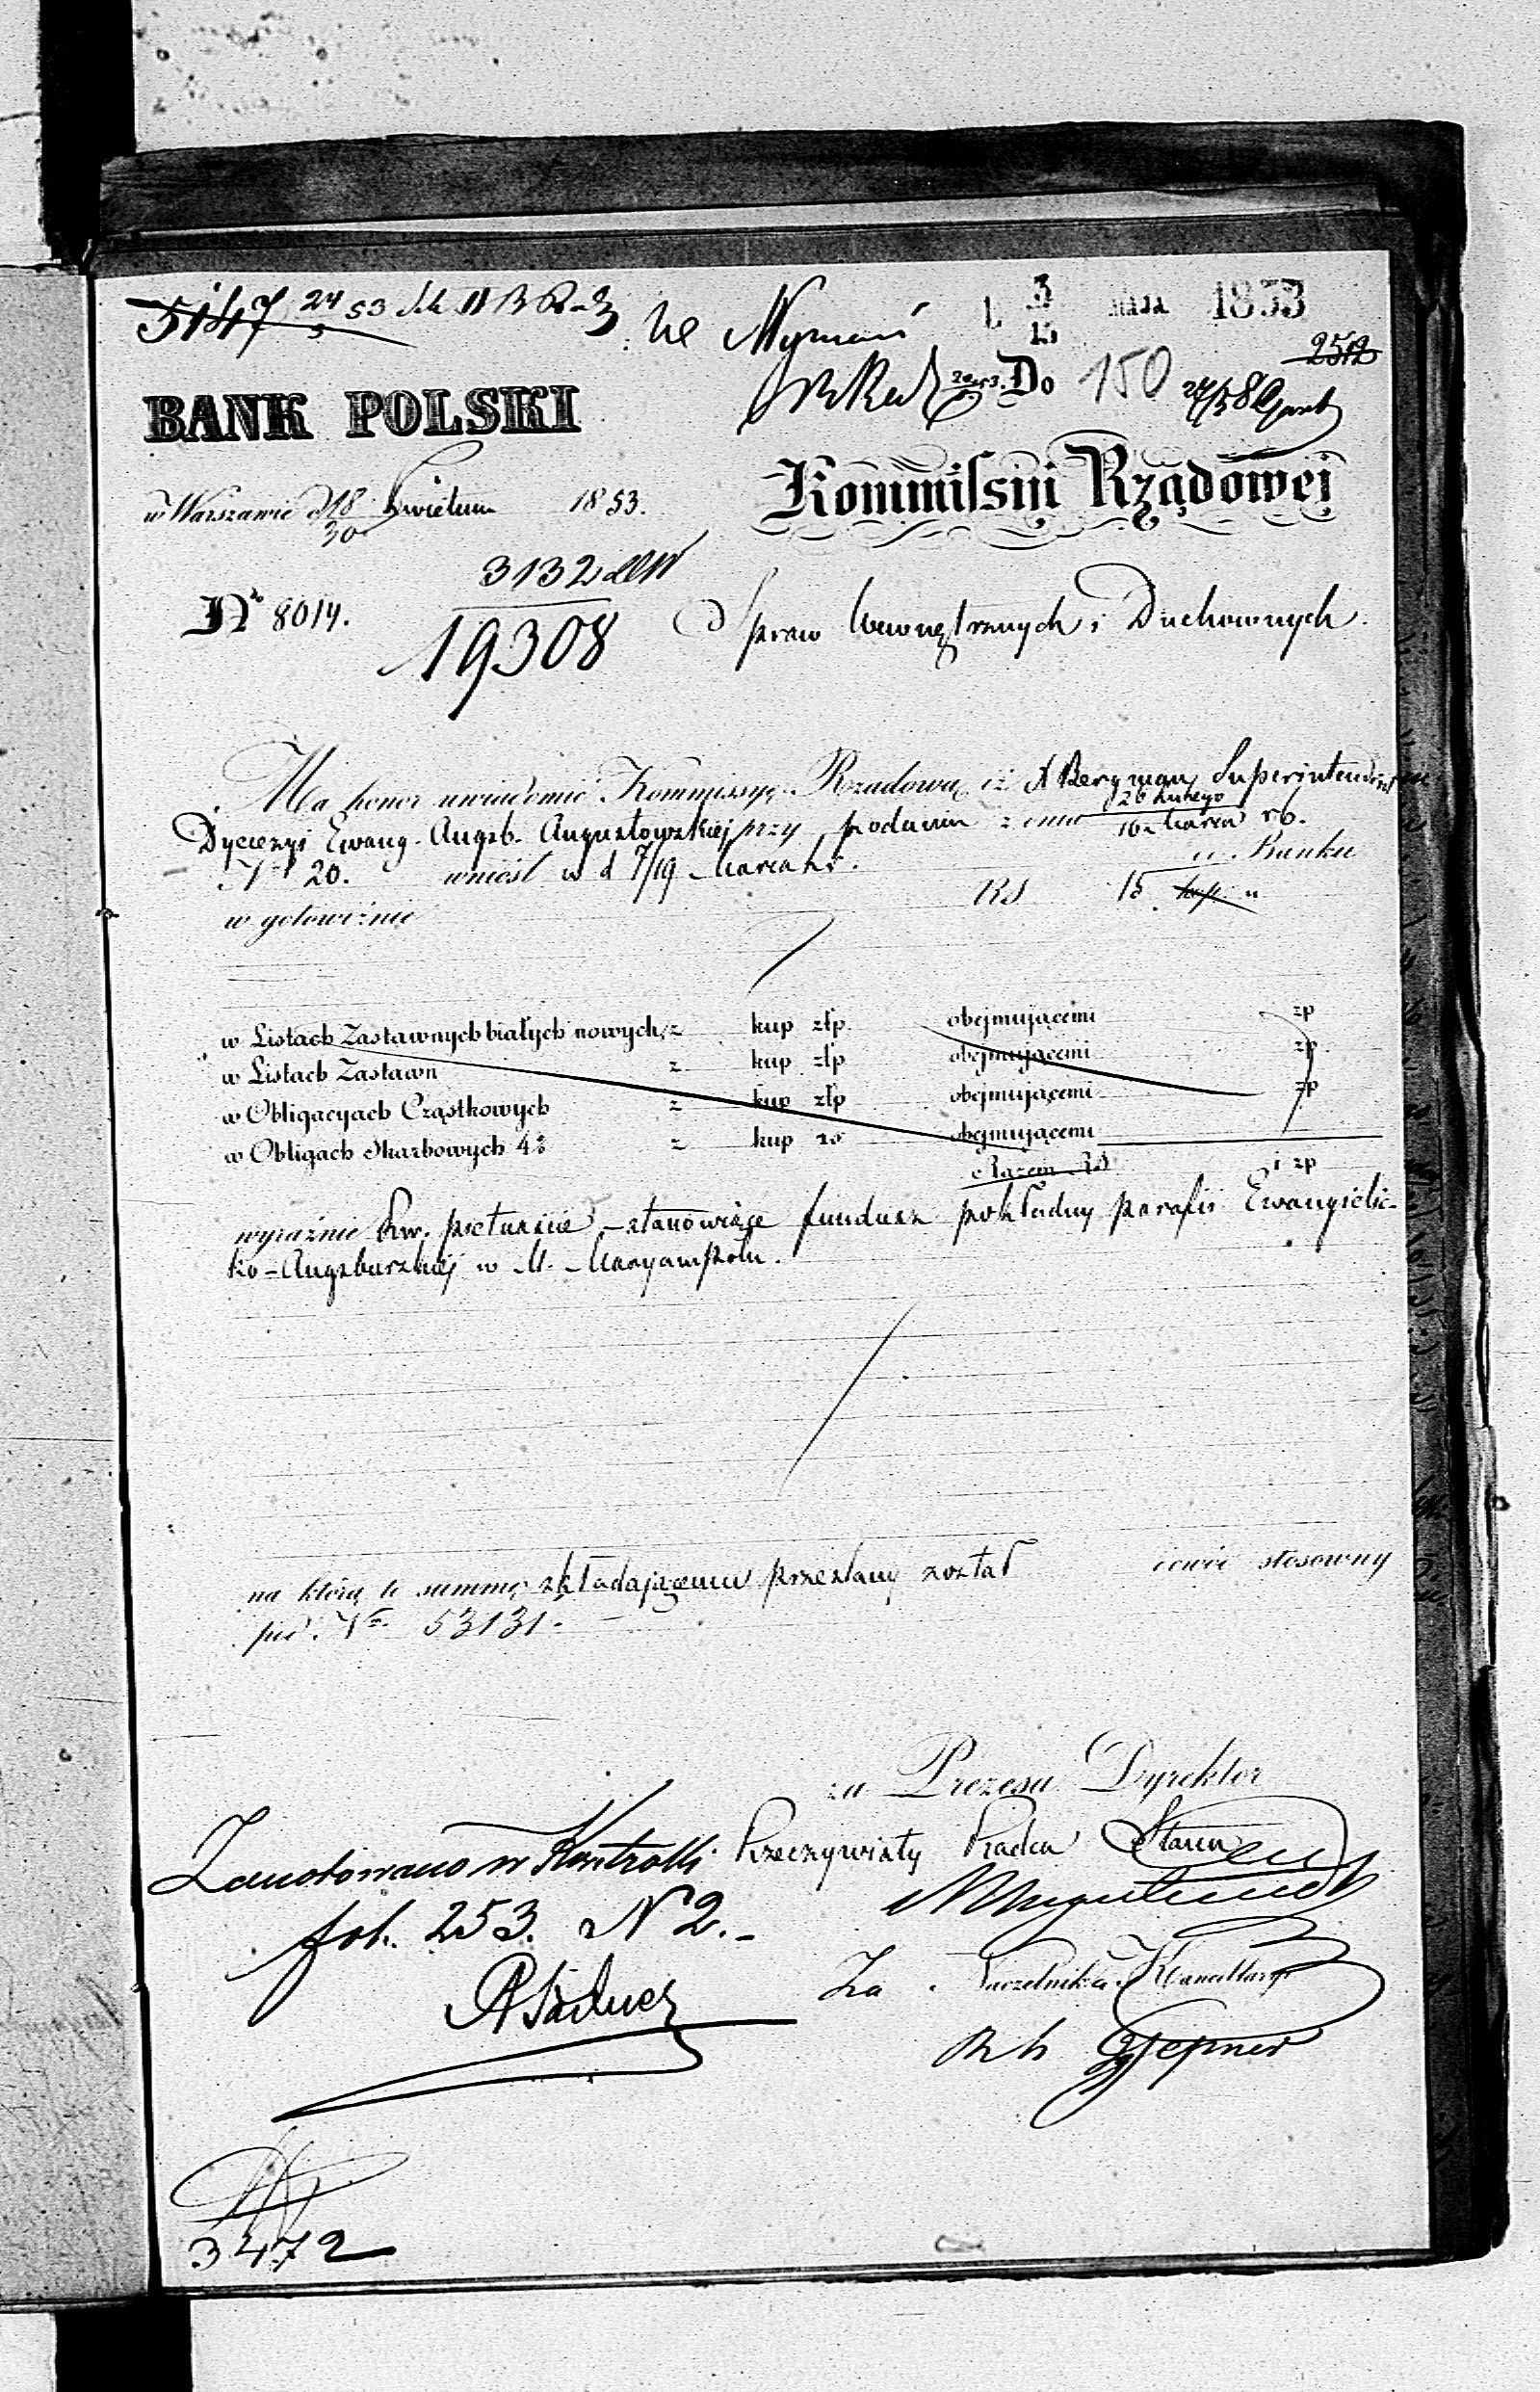 5147 24/5 53
3/15 Maja 1853
2512
Do 150
BANK POLSKI
Kommissyi Rządowej
w Warszawie d 18/30 Kwietnia 1853.
3132
Nº 8014.
19308
Spraw Wewnętrznych i Duchownych.
Ma honor uwiadomić Kommissyę Rządową iż X Bergman Superintendent
Dyecezyi Ewang. Augsb. Augustowskiej przy podaniu z dnia 26 Lutego / 10 Marca rb.
Nº 20. wniósł w d 7/19 Marca b.r. do Banku
w gotowiźnie RS 15 kop. "
w Listach Zastawnych białych nowych, z kup złp. obejmującemi zp
w Listach Zastawn z kup złp obejmującemi zp.
w Obligacyach Cząstkowych z kup złp obejmującemi zp
w Obligach Skarbowych 4% z kup rs obejmującemi
Razem RS i zp
wyraźnie Rsr. piętnaście – stanowiące fundusz pokładny parafii Ewangielic-
ko-Augsburskiej w M. Maryampolu.
na którą to summę składającemu przesłany został dowód stosowny
pod Nº 53131.
za Prezesa Dyrektor
Rzeczywisty Radca Stanu
Zanotowano w Kontrolli
fol. 253. N 2.-
Za Naczelnika Kancellaryi
3472